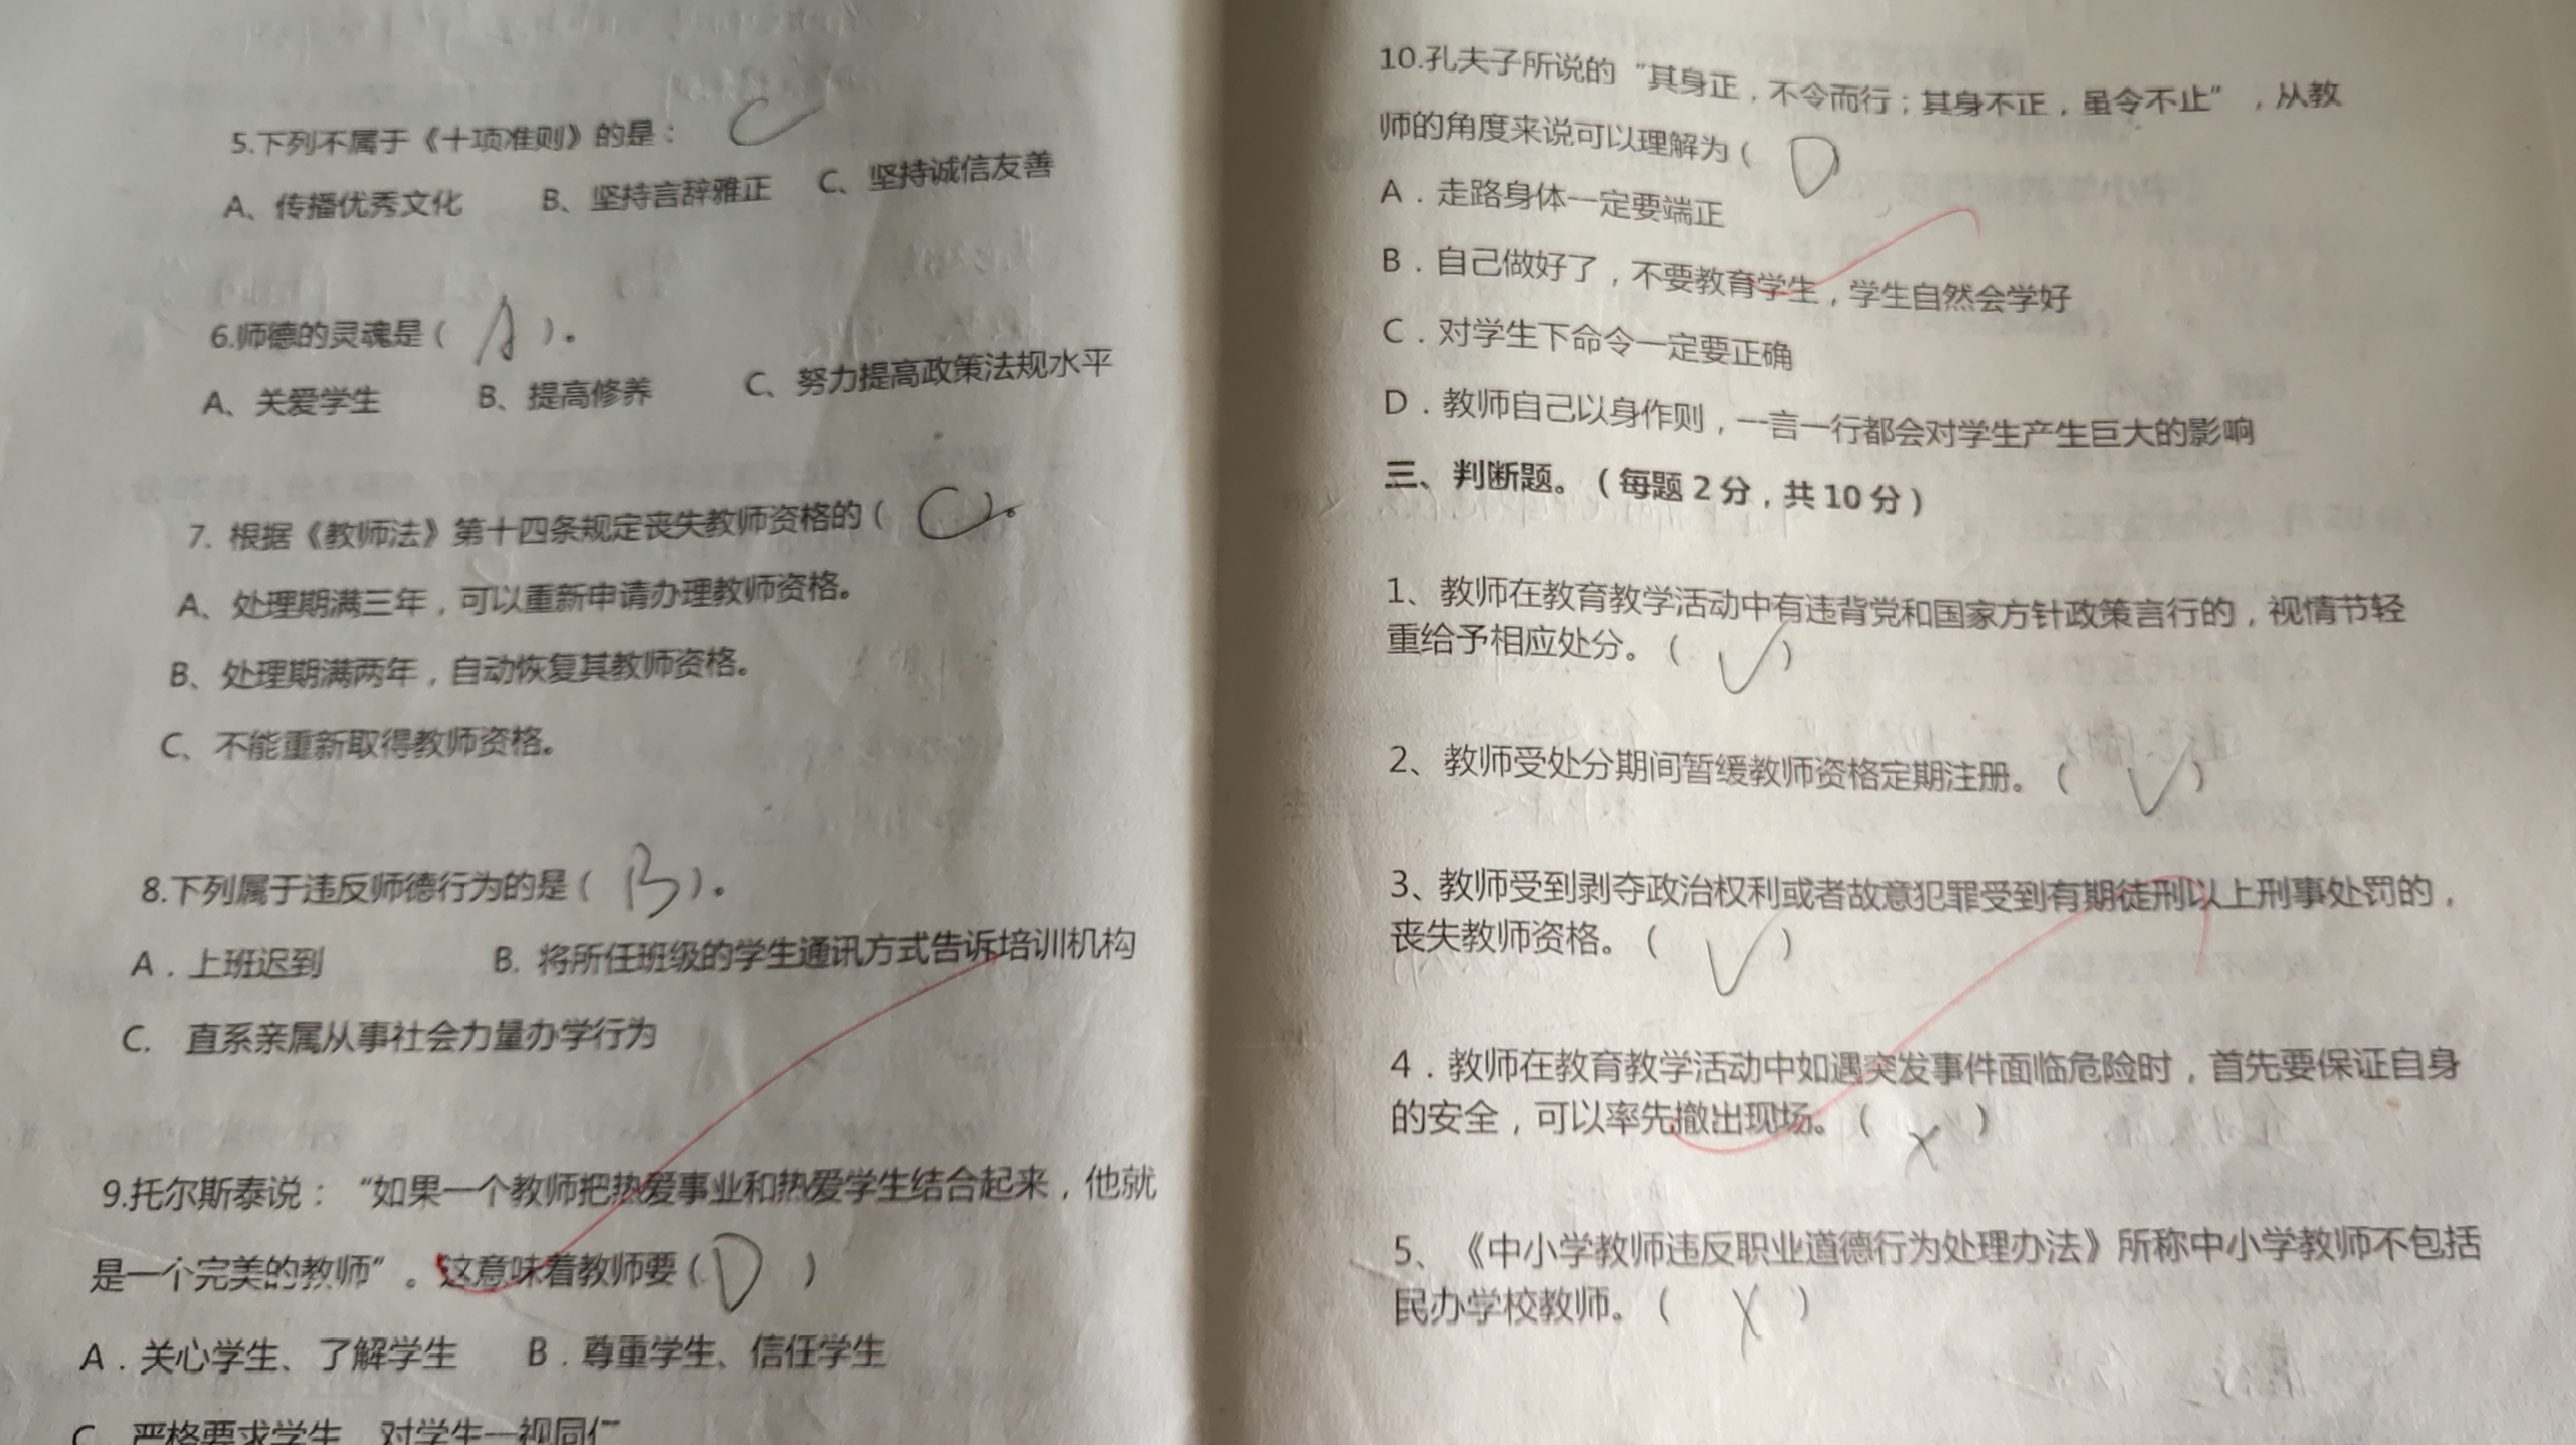 5.下列不属于《十项准则》的是： C
A、传播优秀文化 B、坚持言辞雅正 C、坚持诚信友善
6.师德的灵魂是（ A ）。
A、关爱学生 B、提高修养 C、努力提高政策法规水平
7. 根据《教师法》第十四条规定丧失教师资格的（ C ）。
A、处理期满三年，可以重新申请办理教师资格。
B、处理期满两年，自动恢复其教师资格。
C、不能重新取得教师资格。
8.下列属于违反师德行为的是（ B ）。
A．上班迟到 B. 将所任班级的学生通讯方式告诉培训机构
C. 直系亲属从事社会力量办学行为
9.托尔斯泰说：“如果一个教师把热爱事业和热爱学生结合起来，他就
是一个完美的教师”。这意味着教师要（ D ）
A．关心学生、了解学生 B．尊重学生、信任学生
C 严格要求学生 对学生一视同仁
10.孔夫子所说的“其身正，不令而行；其身不正，虽令不止”，从教
师的角度来说可以理解为（ D ）
A．走路身体一定要端正
B．自己做好了，不要教育学生，学生自然会学好
C．对学生下命令一定要正确
D．教师自己以身作则，一言一行都会对学生产生巨大的影响
三、判断题。（每题2分，共10分）
1、教师在教育教学活动中有违背党和国家方针政策言行的，视情节轻
重给予相应处分。（ √ ）
2、教师受处分期间暂缓教师资格定期注册。（ √ ）
3、教师受到剥夺政治权利或者故意犯罪受到有期徒刑以上刑事处罚的，
丧失教师资格。（ √ ）
4．教师在教育教学活动中如遇突发事件面临危险时，首先要保证自身
的安全，可以率先撤出现场。（ X ）
5、《中小学教师违反职业道德行为处理办法》所称中小学教师不包括
民办学校教师。（ X ）